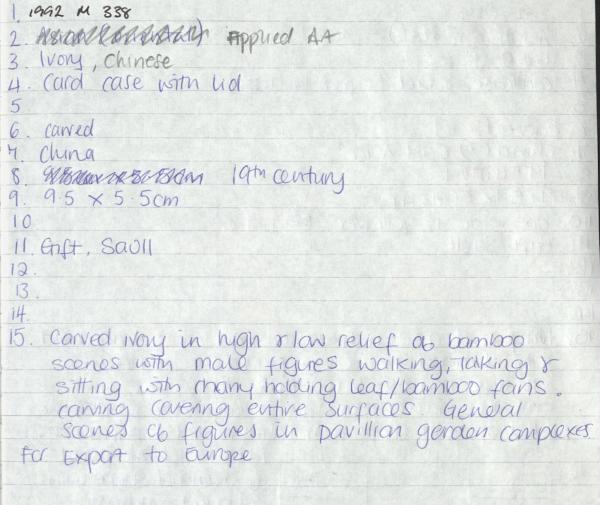 1. 1992 M 338
2. Applied AA
3. Ivory, Chinese
4. Card case with lid
5
6. carved
7. China
8. 19th century
9. 9.5 x 5.5cm
10
11. Gift, Savill
12.
13.
14.
15. Carved ivory in high & low relief ob bamboo
scenes with male figures walking, talking &
sitting with many holding leaf/bamboo fans.
carving covering entire surfaces. General
scenes ob figures in pavillian garden complexes
For Export to Europe